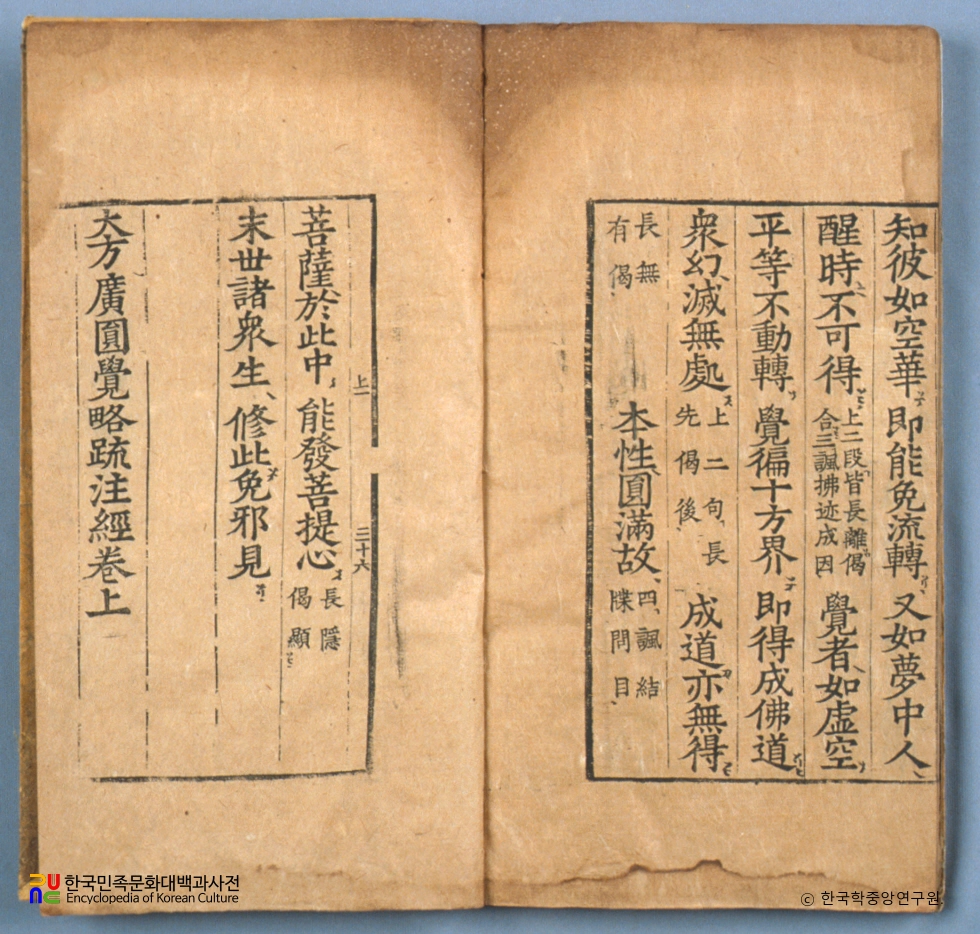 知彼如空華即能免流轉又如夢中人
醒時不可得上二段皆長離偈合三諷拂迹成因覺者如虛空
平等不動轉覺徧十方界即得成佛道
衆幻滅無處上二句長先偈後成道亦無得
長無有偈本性圓滿故四諷結牒問目
上一
三十六
菩薩於此中能發菩提心長隱偈顯
末世諸衆生修此免邪見
大方廣圓覺略疏注經卷上
한국민족문화대백과사전
Encyclopedia of Korean Culture
ⓒ 한국학중앙연구원